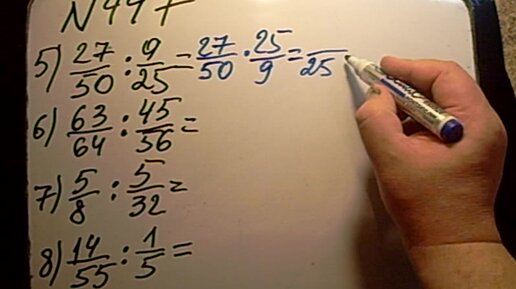 N 447
5) 27/50 : 9/25 = 27/50 · 25/9 = /25
6) 63/64 : 45/56 =
7) 5/8 : 5/32 =
8) 14/55 : 1/5 =